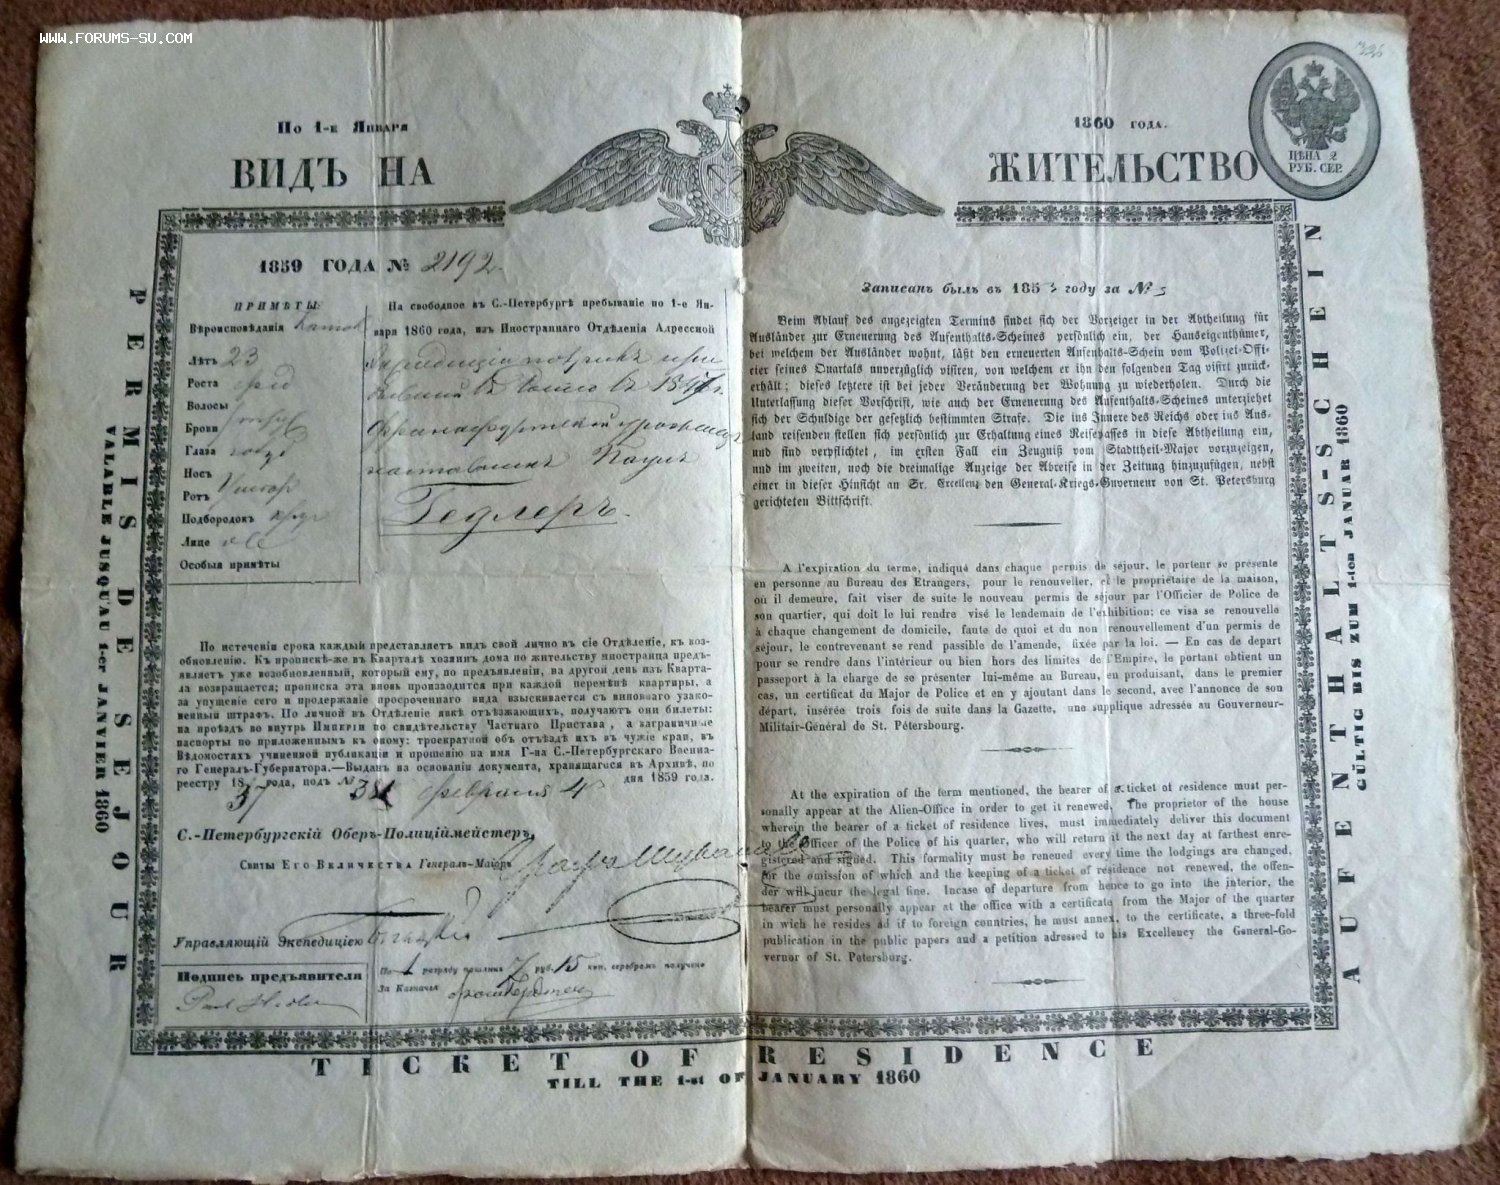 WWW.FORUMS-SU.COM
По 1-е Января
1860 года.
ВИДЪ НА
ЖИТЕЛЬСТВО
ЦѢНА 2
РУБ. СЕР.
PERMIS DE SEJOUR
VALABLE JUSQU'AU 1-er JANVIER 1860
1859 ГОДА № 2192.
ПРИМѢТЫ:
Вѣроисповѣданія
Лѣтъ 23
Роста
Волосы
Брови
Глаза
Носъ
Ротъ
Подбородокъ
Лице
Особыя примѣты
На свободное въ С.-Петербургѣ пребываніе по 1-е Ян-
варя 1860 года, изъ Иностраннаго Отдѣленія Адрессной
Гедлеръ.
По истеченіи срока каждый представляетъ видъ свой лично въ сіе Отдѣленіе, къ воз-
обновленію. Къ пропискѣ-же въ Кварталъ хозяинъ дома по жительству иностранца предъ-
являетъ уже возобновленный, который ему, по предъявленіи, на другой день изъ Кварта-
ла возвращается; прописка эта вновь производится при каждой перемѣнѣ квартиры, а
за упущеніе сего и продержаніе просроченнаго вида взыскивается съ виновнаго узако-
ненный штрафъ. По личной въ Отдѣленіе явкѣ отъѣзжающихъ, получаютъ они билеты:
на проѣздъ во внутрь Имперіи по свидѣтельству Частнаго Пристава, а заграничные
паспорты по приложеннымъ къ оному: троекратной объ отъѣздѣ ихъ въ чужіе краи, въ
Вѣдомостяхъ учиненной публикаціи и прошенію на имя Г-на С.-Петербургскаго Военна-
го Генералъ-Губернатора.—Выданъ на основаніи документа, хранящагося въ Архивѣ, по
реестру 1857 года, подъ № февраля 4 дня 1859 года.
С.-Петербургскій Оберъ-Полиціймейстеръ,
Свиты Его Величества Генералъ-Маіоръ
Управляющій Экспедиціею
Подпись предъявителя
По 1 разряду пошлины 7 руб. 15 коп. серебромъ получено
За Казначея
Записанъ былъ въ 185 году за №
Beim Ablauf des angezeigten Termins findet sich der Vorzeiger in der Abtheilung für
Ausländer zur Erneuerung des Aufenthalts-Scheines persönlich ein, der Hauseigenthümer,
bei welchem der Ausländer wohnt, läßt den erneuerten Aufenthalts-Schein vom Polizei-Offi-
cier seines Quartals unverzüglich visiren, von welchem er ihn den folgenden Tag visirt zurück-
erhält; dieses letztere ist bei jeder Veränderung der Wohnung zu wiederholen. Durch die
Unterlassung dieser Vorschrift, wie auch der Erneuerung des Aufenthalts-Scheines unterziehet
sich der Schuldige der gesetzlich bestimmten Strafe. Die ins Innere des Reichs oder ins Aus-
land reisenden stellen sich persönlich zur Erhaltung eines Reisepasses in diese Abtheilung ein,
und sind verpflichtet, im ersten Fall ein Zeugniß vom Stadttheil-Major vorzuzeigen,
und im zweiten, noch die dreimalige Anzeige der Abreise in der Zeitung hinzuzufügen, nebst
einer in dieser Hinsicht an Sr. Excellenz den General-Kriegs-Guverneur von St. Petersburg
gerichteten Bittschrift.
A l'expiration du terme, indiqué dans chaque permis de séjour, le porteur se présente
en personne au Bureau des Etrangers, pour le renouveller, et le propriétaire de la maison,
où il demeure, fait viser de suite le nouveau permis de séjour par l'Officier de Police de
son quartier, qui doit le lui rendre visé le lendemain de l'exhibition; ce visa se renouvelle
à chaque changement de domicile, faute de quoi et du non renouvellement d'un permis de
séjour, le contrevenant se rend passible de l'amende, fixée par la loi. — En cas de depart
pour se rendre dans l'intérieur ou bien hors des limites de l'Empire, le portant obtient un
passeport à la charge de se présenter lui-même au Bureau, en produisant, dans le premier
cas, un certificat du Major de Police et en y ajoutant dans le second, avec l'annonce de son
départ, insérée trois fois de suite dans la Gazette, une supplique adressée au Gouverneur-
Militair-Général de St. Pétersbourg.
At the expiration of the term mentioned, the bearer of a ticket of residence must per-
sonally appear at the Alien-Office in order to get it renewed. The proprietor of the house
wherein the bearer of a ticket of residence lives, must immediately deliver this document
to the Officer of the Police of his quarter, who will return it the next day at farthest enre-
gistered and signed. This formality must be reneued every time the lodgings are changed,
for the omission of which and the keeping of a ticket of residence not renewed, the offen-
der will incur the legal fine. Incase of departure from hence to go into the interior, the
bearer must personally appear at the office with a certificate from the Major of the quarter
in wich he resides ad if to foreign countries, he must annex, to the certificate, a three-fold
publication in the public papers and a petition adressed to his Excellency the General-Go-
vernor of St. Petersburg.
AUFENTHALTS-SCHEIN
GÜLTIG BIS ZUM 1-ten JANUAR 1860
TICKET OF RESIDENCE
TILL THE 1-st OF JANUARY 1860